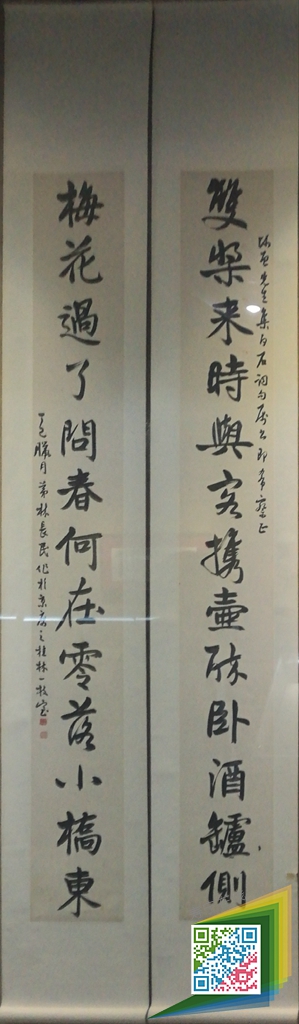 先生集白石詞句屬書即希正
雙槳来時與客攜壺醉卧酒鑪側
梅花過了問春何在零落小橋東
丁巳臘月弟林長民作於京之桂林一枝室